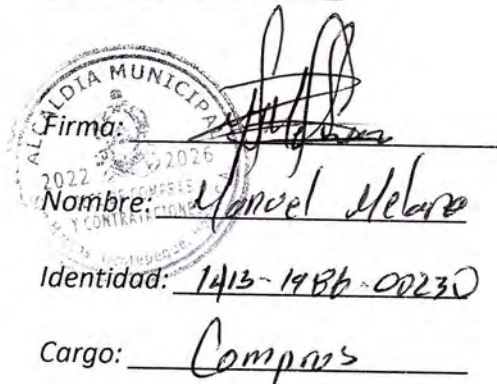 ALCALDIA MUNICIPAL
Firma:
2022 2026
DE COMPRAS
Y CONTRATACIONES
Nombre: Manuel Melara
Identidad: 1413-1986-00230
Cargo: Compras